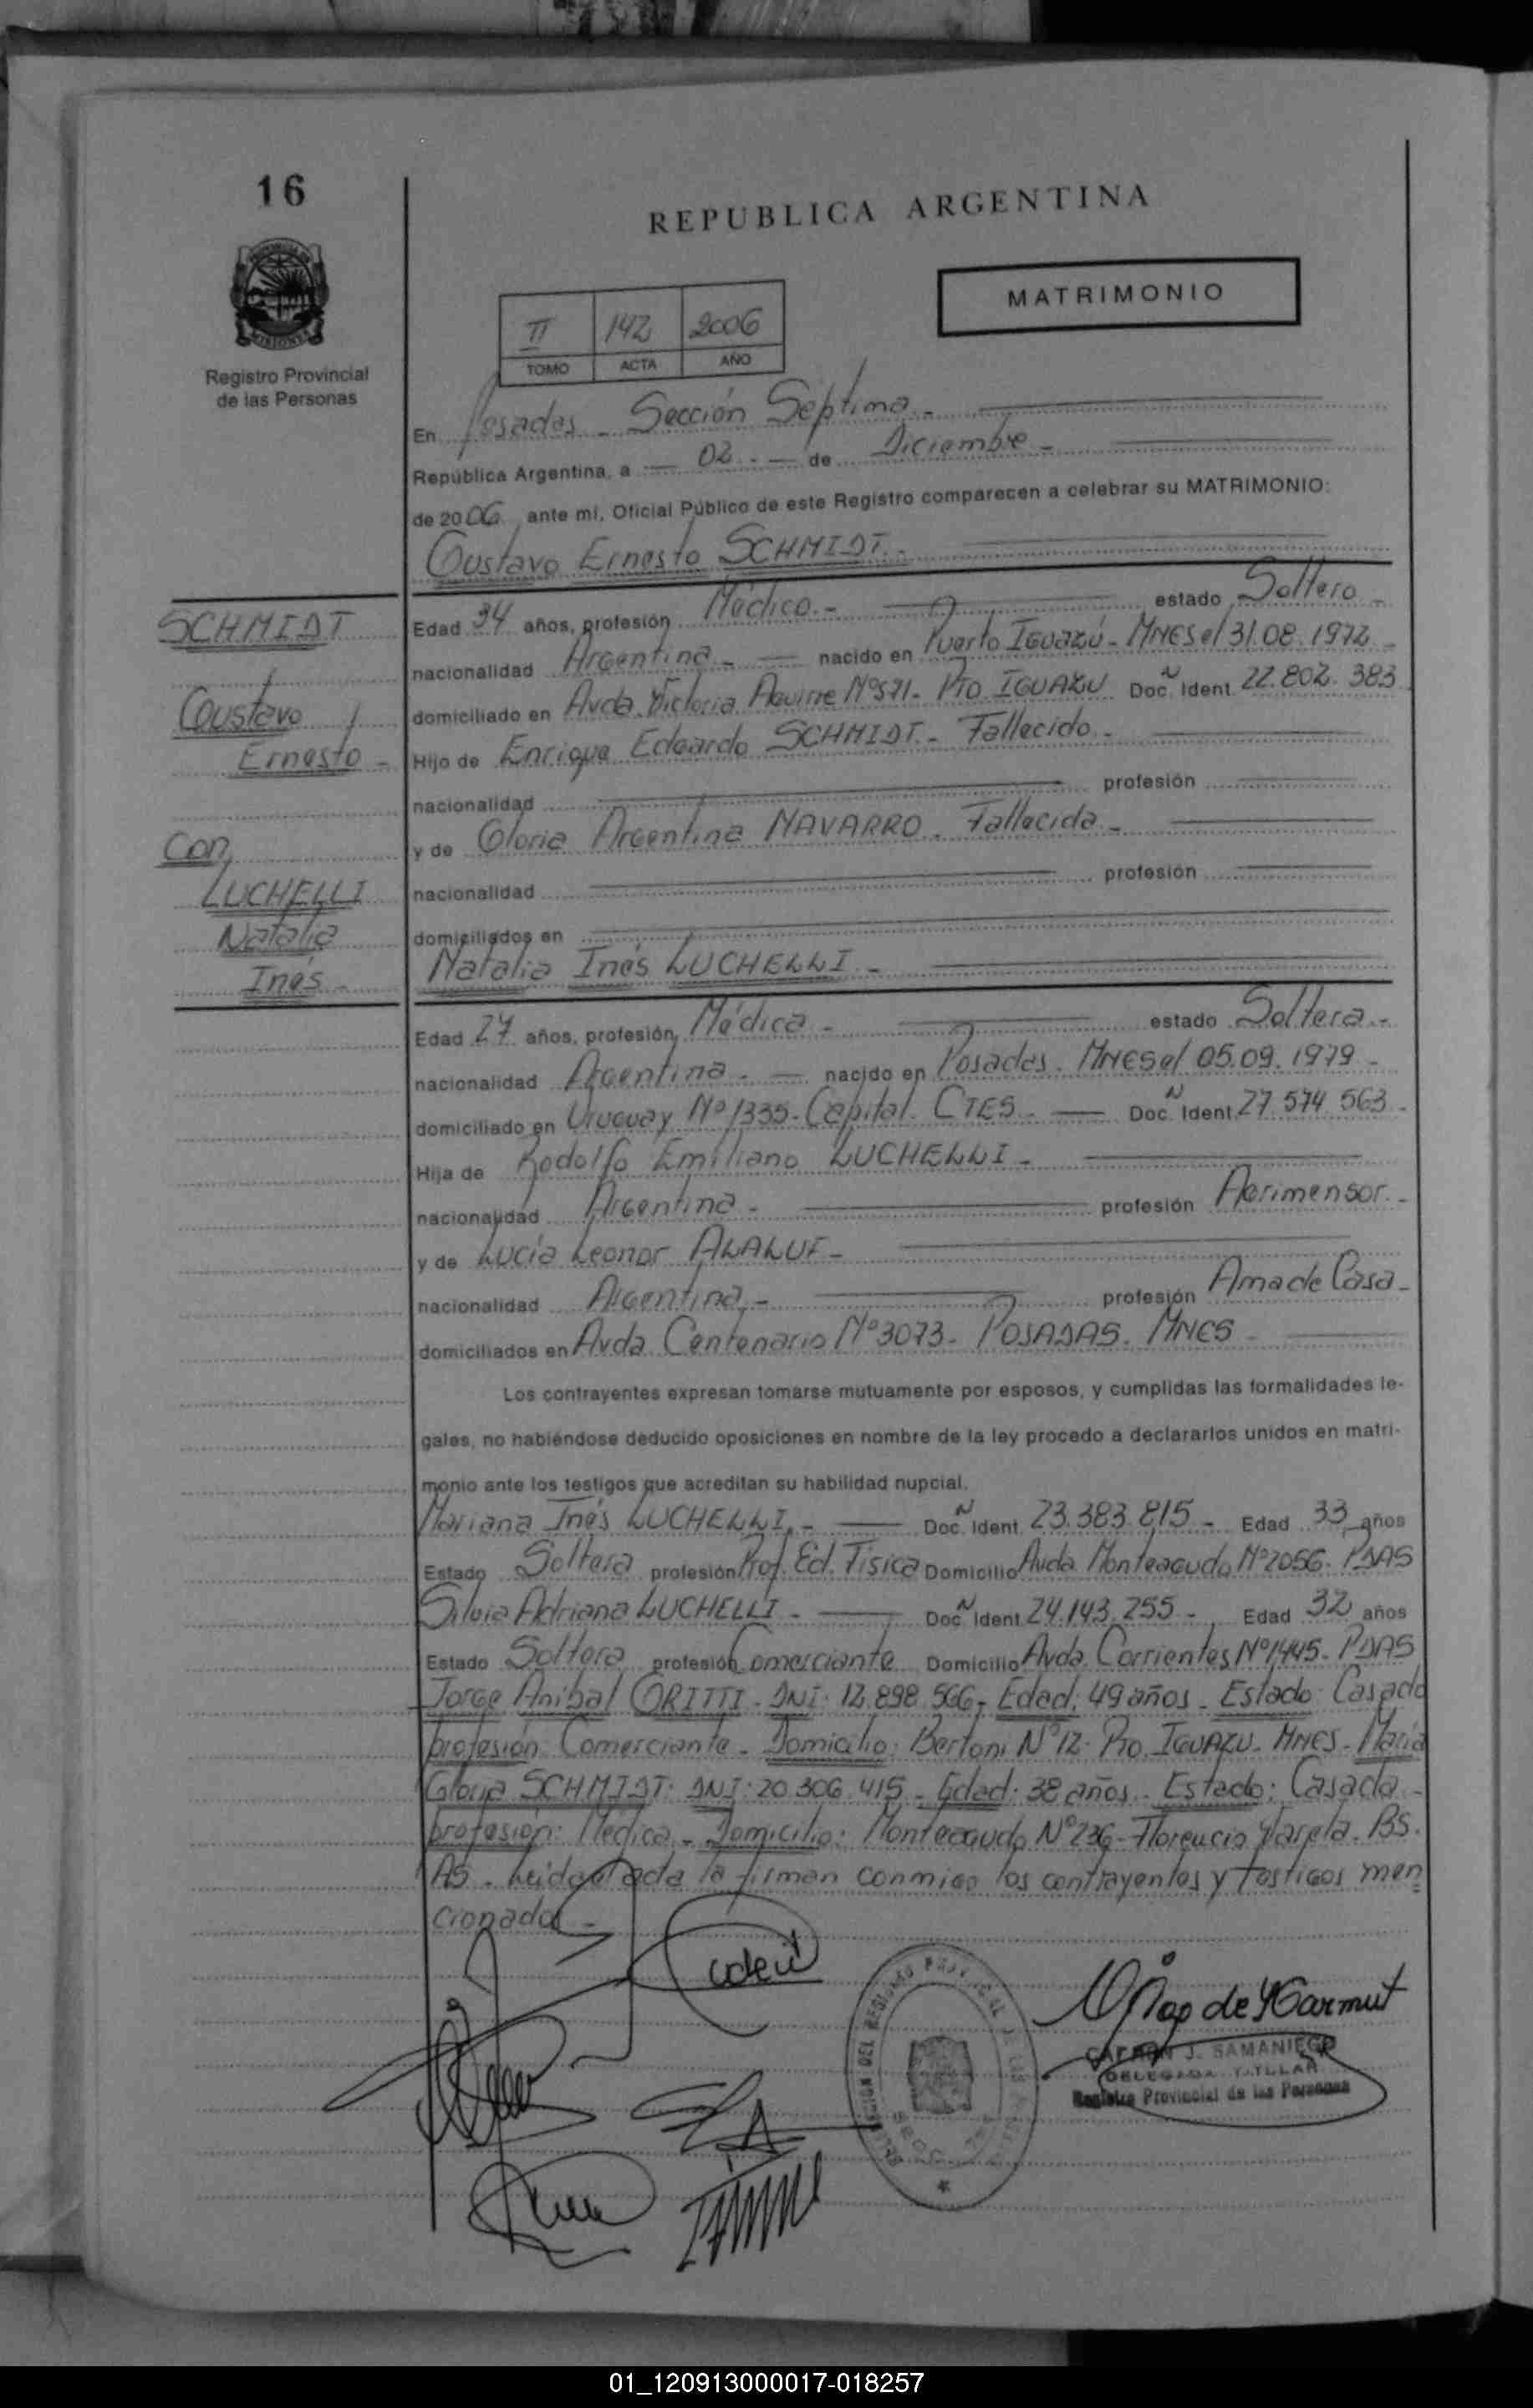 16
REPUBLICA ARGENTINA
MATRIMONIO
Registro Provincial
de las Personas
II 142 2006
TOMO ACTA AÑO
En Posadas - Sección Séptima -
República Argentina, a 02 - de Diciembre -
de 2006 ante mí, Oficial Público de este Registro comparecen a celebrar su MATRIMONIO:
Gustavo Ernesto SCHMIDT -
SCHMIDT
Gustavo
Ernesto -
Con
LUCHELLI
Natalia
Inés -
Edad 34 años, profesión Médico - estado Soltero -
nacionalidad Argentina - nacido en Puerto IGUAZú - MNES el 31.08.1972 -
domiciliado en Avda. Victoria Aguirre Nº571 - PTO. IGUAZU Doc. Ident. N 22.802.383
Hijo de Enrique Edgardo SCHMIDT - Fallecido -
nacionalidad profesión
y de Gloria Argentina NAVARRO - Fallecida -
nacionalidad profesión
domiciliados en
Natalia Inés LUCHELLI -
Edad 27 años, profesión Médica - estado Soltera -
nacionalidad Argentina - nacido en Posadas - MNES el 05.09.1979 -
domiciliado en Uruguay Nº 1335 - Capital - CTES - Doc. Ident. N 27.574.563 -
Hija de Rodolfo Emiliano LUCHELLI -
nacionalidad Argentina - profesión Agrimensor -
y de Lucía Leonor ALALUF -
nacionalidad Argentina - profesión Ama de Casa -
domiciliados en Avda. Centenario Nº3073 - POSADAS - MNES -
Los contrayentes expresan tomarse mutuamente por esposos, y cumplidas las formalidades le-
gales, no habiéndose deducido oposiciones en nombre de la ley procedo a declararlos unidos en matri-
monio ante los testigos que acreditan su habilidad nupcial.
Mariana Inés LUCHELLI - Doc. Ident. N 23.383.815 - Edad 33 años
Estado Soltera profesión Prof. Ed. Física Domicilio Avda. Monteagudo Nº2056 - PDAS
Silvia Adriana LUCHELLI - Doc. Ident. N 24.143.255 - Edad 32 años
Estado Soltera profesión Comerciante Domicilio Avda. Corrientes Nº1445 - PDAS
Jorge Anibal GRITTI - DNI: 12.898.566 - Edad: 49 años - Estado: Casado
profesión: Comerciante - Domicilio: Bertoni Nº12 - PTO. IGUAZU - MNES - María
Gloria SCHMIDT: DNI: 20.306.415 - Edad: 38 años - Estado: Casada -
profesión: Médica - Domicilio: Monteagudo Nº236 - Florencio Varela - BS.
AS - Leída el acta la firman conmigo los contrayentes y testigos men
cionados -
CARMEN J. SAMANIEGO
DELEGADA TITULAR
Registro Provincial de las Personas
01_120913000017-018257